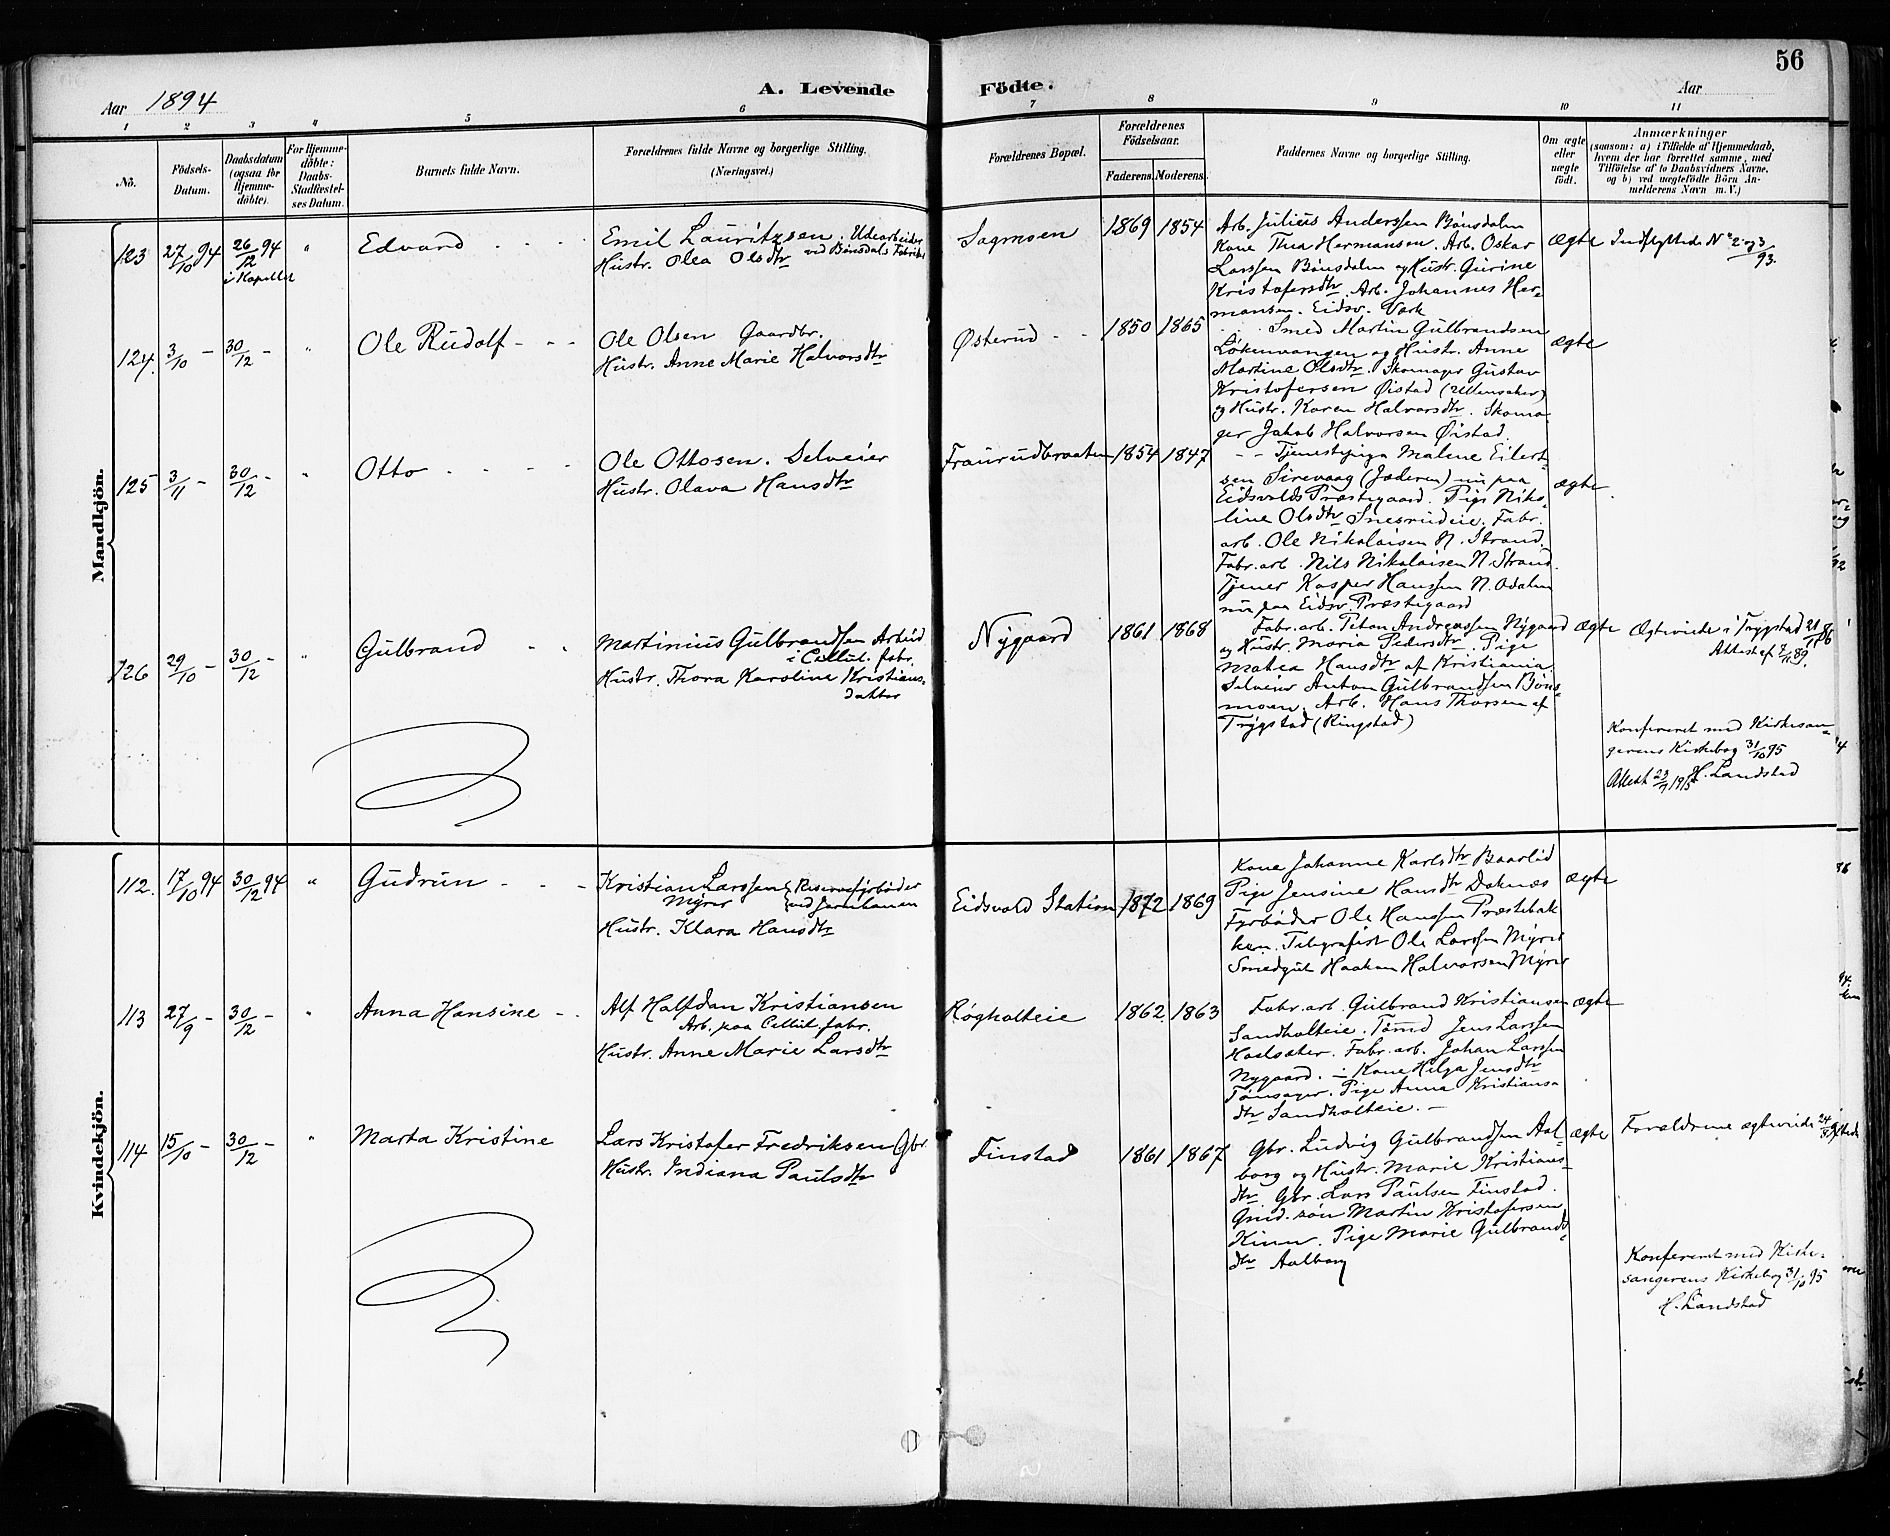 56
Aar 1894
A. Levende Födte.
Aar
1 2 3 4 5 6 7 8 9 10 11
No.
Födsels-
Datum.
Daabsdatum
(ogsaa for
Hjemme-
döbte).
For Hjemme-
döbte:
Daabs-
Stadfæstel-
ses Datum.
Barnets fulde Navn.
Forældrenes fulde Navne og borgerlige Stilling.
(Næringsvei.)
Forældrenes Bopæl.
Forældrenes
Födselsaar.
Faderens. Moderens.
Faddernes Navne og borgerlige Stilling.
Om ægte
eller
uægte
födt.
Anmærkninger
(saasom: a) i Tilfælde af Hjemmedaab,
hvem der har forrettet samme, med
Tilföielse af to Daabsvidners Navne,
og b) ved uægtefödte Börn An-
melderens Navn m. V.)
Mandkjön.
123 27/10 94 26/12 94 "
i Kapellet
Edvard
Emil Lauritzsen. Udearbeider
ved Bönsdals Fabrik
Hustr. Olea Olsdtr
Sagmoen
1869 1854
Arb. Julius Anderssen Bönsdalen
Kone Thea Hermansen. Arb. Oskar
Larssen Bönsdalen og Hustr. Gurine
Kristofersdtr. Arb. Johannes Her-
mansen. Eidsv. Værk
ægte
Indflyttede No 2 og 3/93.
124. 3/10 - 30/12 - "
Ole Rudolf
Ole Olsen Gaardbr.
Hustr. Anne Marie Halvorsdtr
Østerud
1850 1865
Smed Martin Gulbrandsen
Løkenvangen og Hustr. Anne
Martine Olsdtr. Skomager Gustav
Kristofersen Øistad (Ullensaker)
og Hustr. Karen Halvorsdtr. Skoma-
ger Jakob Halvorsen Øistad.
ægte
125 3/11 - 30/12 - "
Otto
Ole Ottosen. Selveier
Hustr. Olava Hansdtr
Fraurudbraaten
1854 1847
Tjenestepige Malene Eilert-
sen Sirevaag (Jæderen) nu paa
Eidsvolds Præstegaard. Pige Niko-
line Olsdtr Snesrudeie. Fabr.
arb. Ole Nikolaisen N. Strand.
Fabr. arb. Nils Nikolaisen N. Strand.
Tjener Kasper Hanssen N. Odalen
nu paa Eidsv. Præstegaard
ægte.
126 29/10 - 30/12 - "
Gulbrand
Martinius Gulbrandsen Arbeid
i Cellul. fabr.
Hustr. Thora Karoline Kristians-
datter
Nygaard
1861 1868
Fabr. arb. Peter Andreassen Nygaard
og Hustr. Maria Pedersdtr. Pige
Matea Hansdtr af Kristiania.
Selveier Anton Gulbrandsen Böns-
moen. Arb. Hans Thorsen af
Trygstad (Ringstad)
ægte
Ægteviede i Trygstad
Attest af 7/11 89.
Konfereret med Kirkesan-
gerens Kirkebog 31/10 95
H. Landstad
Attest 23/7 1915
Kvindekjön.
112. 17/10 94 30/12 94 "
Gudrun
Kristian Larssen Reservefyrböder
Myrer ved Jernbanen
Hustr. Klara Hansdtr
Eidsvold Station
1872 1869
Kone Johanne Karlsdtr Baarlid
Pige Jensine Hansdtr Doknæs
Fyrböder Ole Hanssen Præstebak-
ken. Telegrafist Ole Larssen Myrer
Smedgut Haakon Halvorsen Myrer
ægte
113 27/9 - 30/12 - "
Anna Hansine
Alf Halfdan Kristiansen
Arb. paa Cellul. fabr.
Hustr. Anne Marie Larsdtr
Røgholteie
1862. 1863
Fabr. arb. Gulbrand Kristiansen
Sandholteie. Tømd Jens Larssen
Hoelsæter. Fabr. arb. Johan Larssen
Nygaard. Kone Helga Jensdtr
Pige Anna Kristians-
dtr Sandholteie.
ægte
114 15/10 - 30/12 - "
Marta Kristine
Lars Kristofer Fredriksen Gbr.
Hustr. Indiana Paulsdtr
Finstad
1861 1867
Gbr. Ludvig Gulbrandsen Aal-
borg og Hustr. Marie Kristians-
dtr Gbr. Lars Paulsen Finstad.
Gmd. sön Martin Kristofersen
Kinn. Pige Marie Gulbrands-
dtr Aalborg
ægte
Forældrene ægteviede
Konfereret med Kirke-
sangerens Kirkebog 31/10 95
H. Landstad